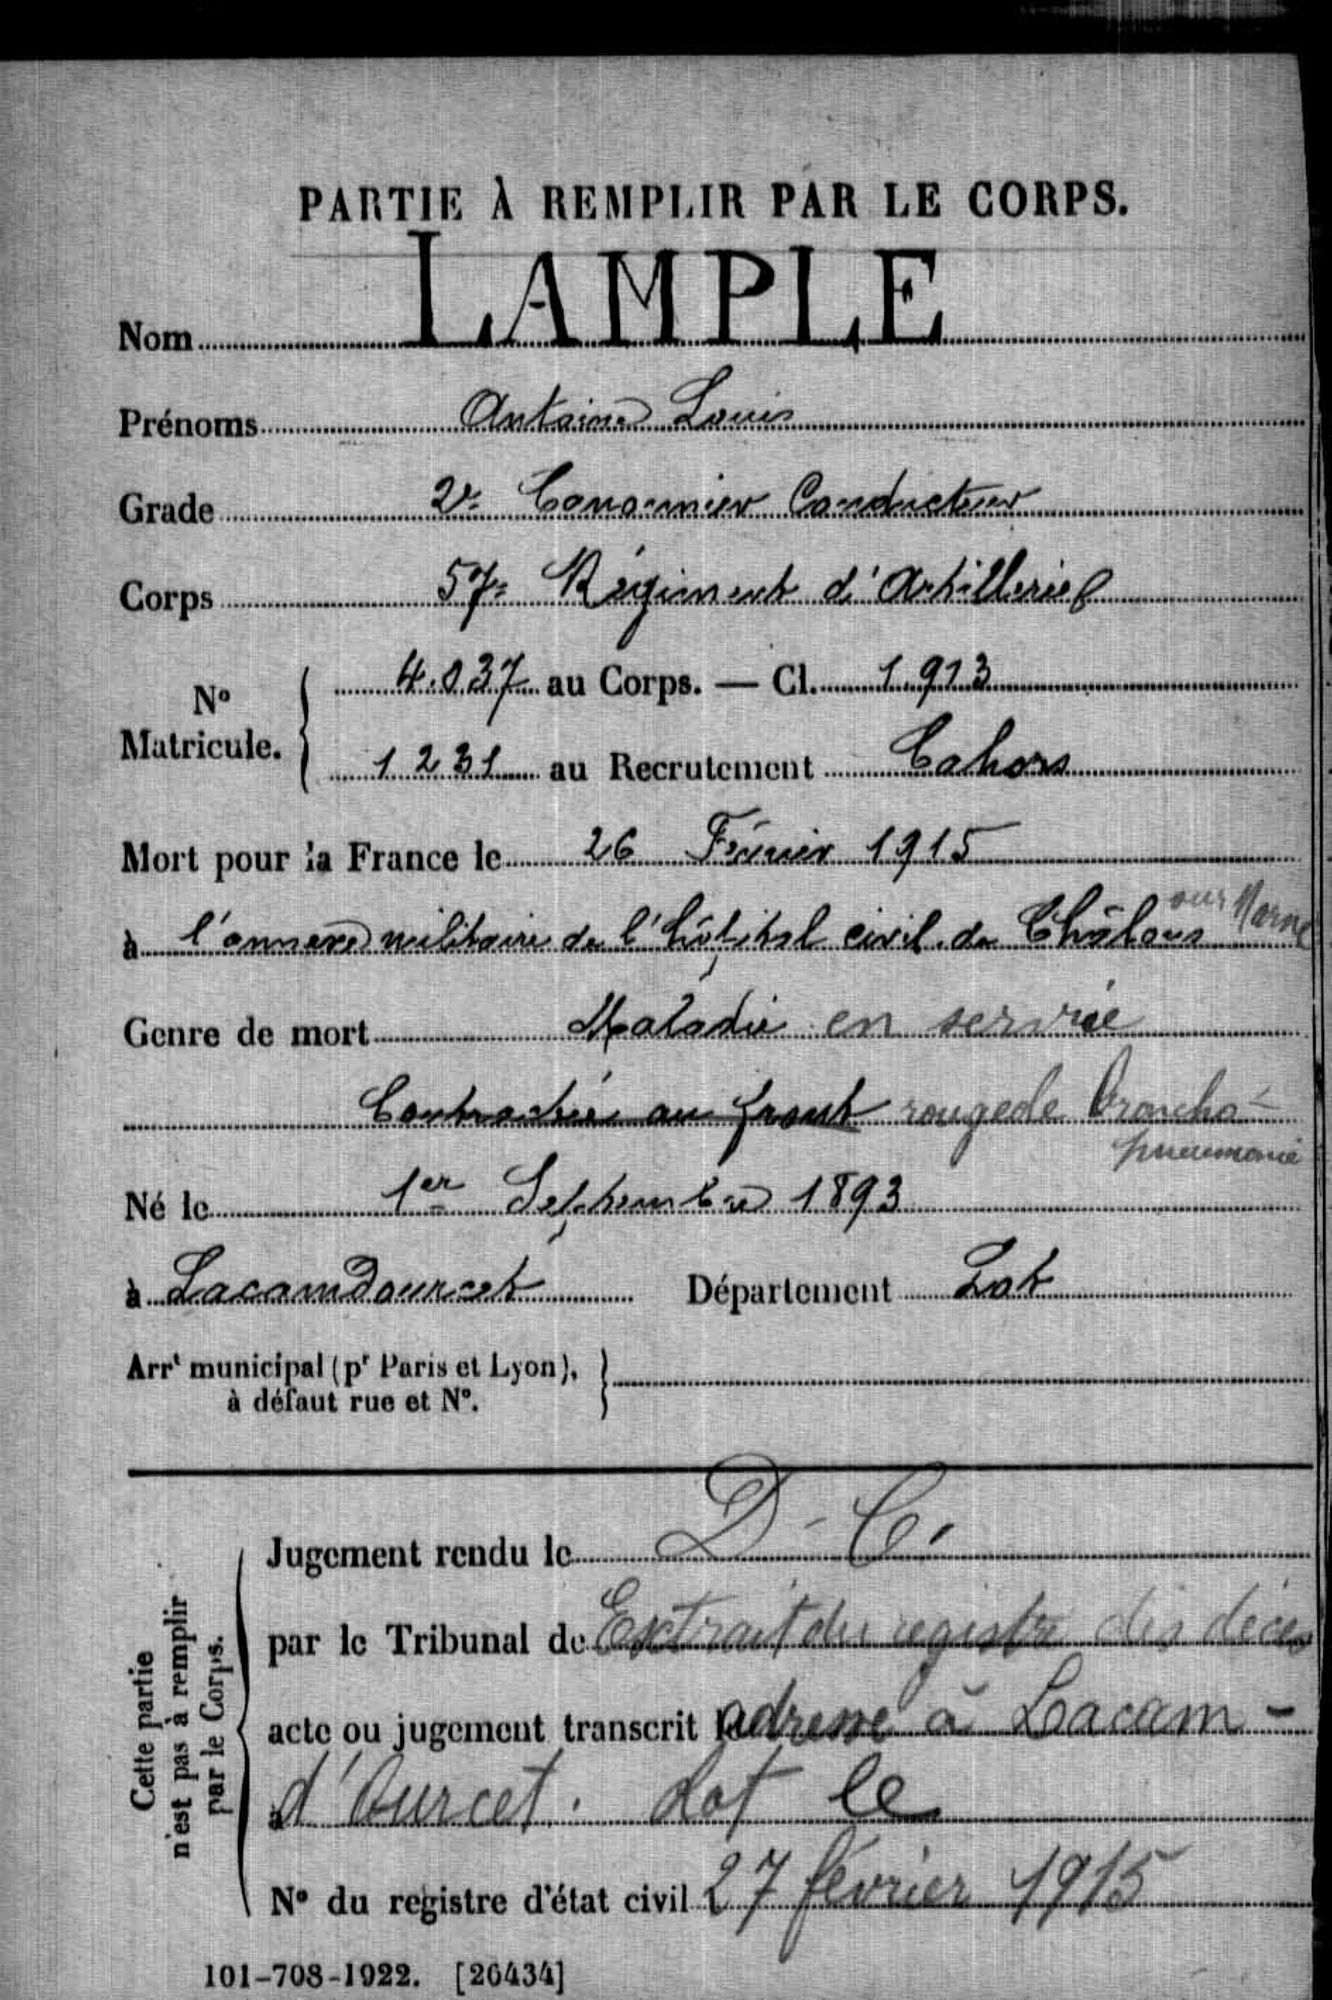 PARTIE À REMPLIR PAR LE CORPS.
Nom LAMPLE
Prénoms Antoine Louis
Grade 2e Canonnier Conducteur
Corps 57e Régiment d'Artillerie
N° Matricule. 4.037 au Corps. — Cl. 1913
1231 au Recrutement Cahors
Mort pour la France le 26 Février 1915
à l'annexe militaire de l'hôpital civil de Châlons sur Marne
Genre de mort Maladie en service
Contractée au front rougeole broncho-
pneumonie
Né le 1er Septembre 1893
à Lacamdourcet Département Lot
Arrt municipal (pr Paris et Lyon),
à défaut rue et N°.
Cette partie
n'est pas à remplir
par le Corps.
Jugement rendu le D-C.
par le Tribunal de Extrait du registre des décès
acte ou jugement transcrit le adressé à Lacam-
à d'Ourcet. Lot le
N° du registre d'état civil 27 février 1915
101-708-1922. [26434]